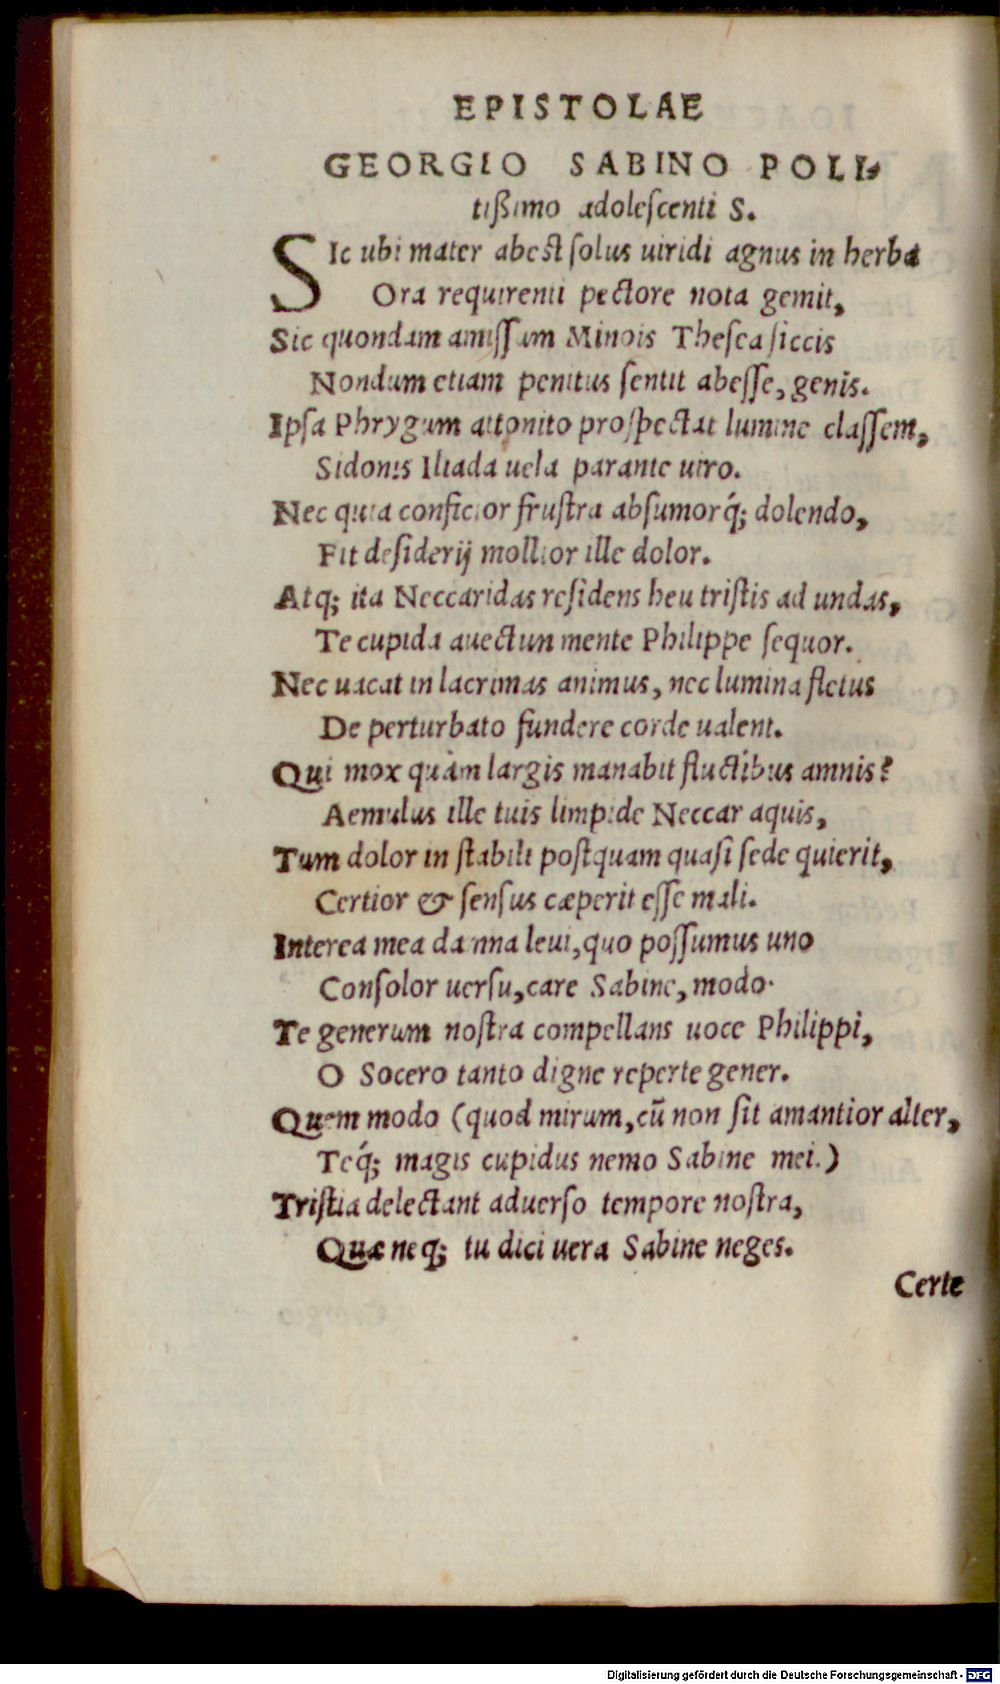 EPISTOLAE
GEORGIO SABINO POLI-
tißimo adoleſcenti S.
SIc ubi mater abeſt ſolus uiridi agnus in herba
Ora requirenti pectore nota gemit,
Sic quondam amiſſam Minois Theſea ſiccis
Nondum etiam penitus ſentit abeſſe, genis.
Ipſa Phrygum attonito proſpectat lumine claſſem,
Sidonis Iliada uela parante uiro.
Nec quia conficior fruſtra abſumorq́; dolendo,
Fit deſiderij mollior ille dolor.
Atq; ita Neccaridas reſidens heu triſtis ad undas,
Te cupida auectum mente Philippe ſequor.
Nec uacat in lacrimas animus, nec lumina fletus
De perturbato fundere corde ualent.
Qui mox quàm largis manabit fluctibus amnis?
Aemulus ille tuis limpide Neccar aquis,
Tum dolor in ſtabili poſtquam quaſi ſede quierit,
Certior & ſenſus cæperit eſſe mali.
Interea mea damna leui, quo poſſumus uno
Conſolor uerſu, care Sabine, modo.
Te generum noſtra compellans uoce Philippi,
O Socero tanto digne reperte gener.
Quem modo (quod mirum, cū non ſit amantior alter,
Teq́; magis cupidus nemo Sabine mei.)
Triſtia delectant aduerſo tempore noſtra,
Quæ neq; tu dici uera Sabine neges.
Certe
Digitalisierung gefördert durch die Deutsche Forschungsgemeinschaft - DFG